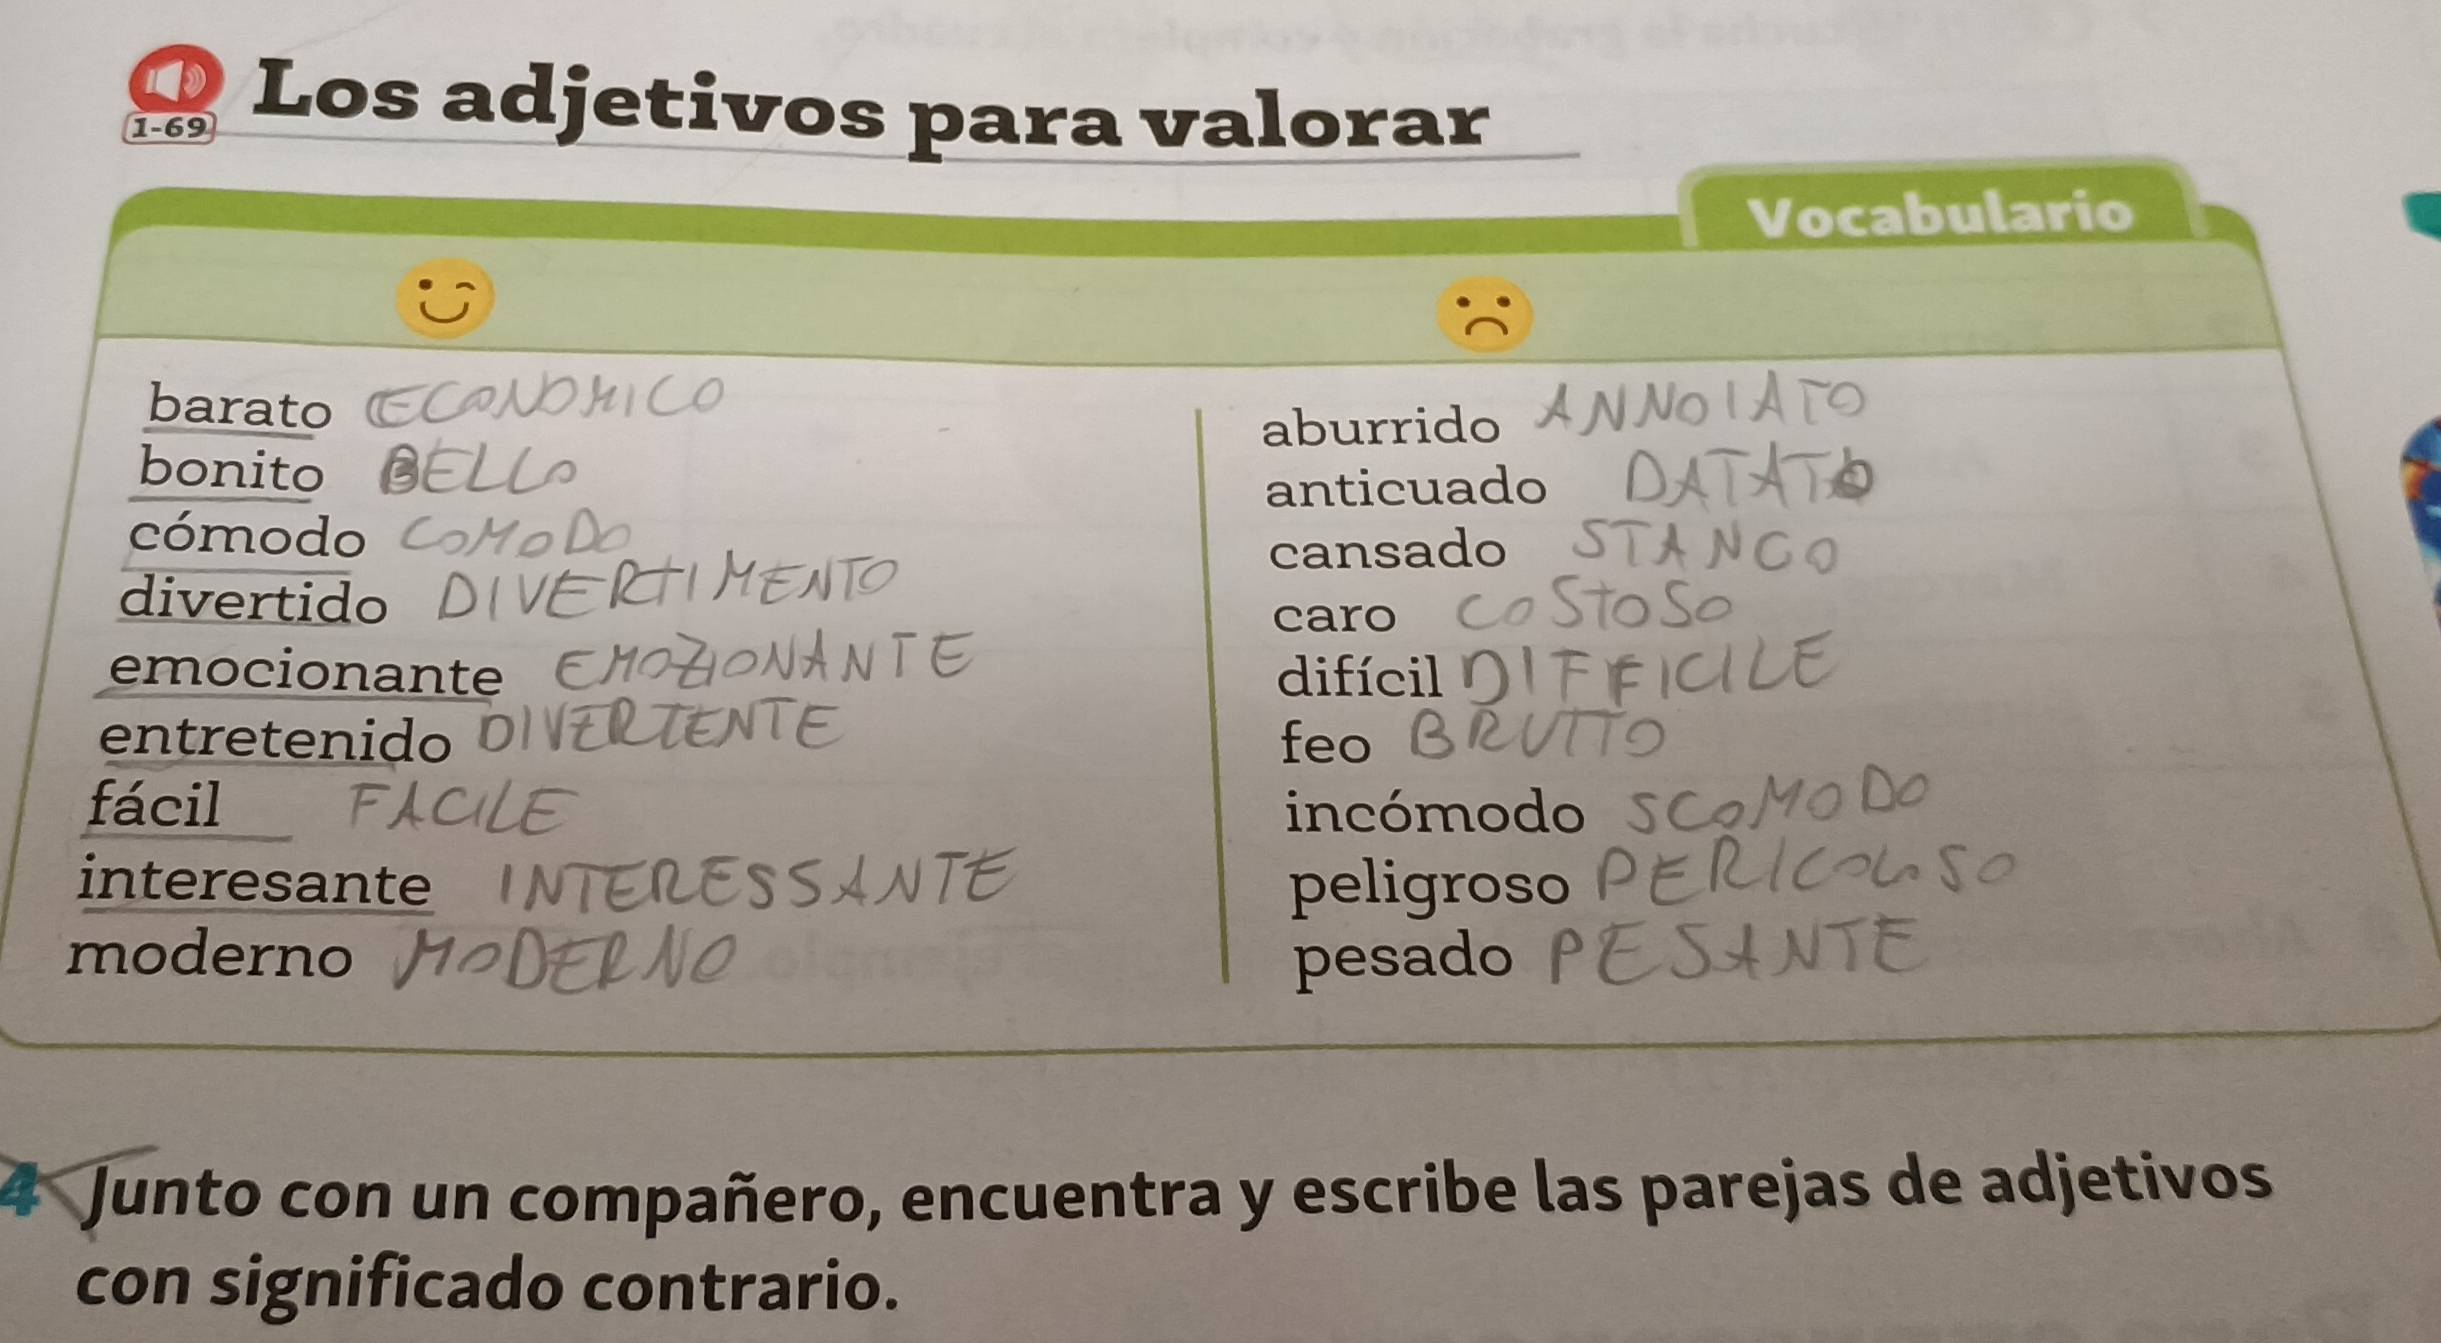 1-69
Los adjetivos para valorar
Vocabulario
barato ECONOMICO
bonito BELLO
cómodo COMODO
divertido DIVERTIMENTO
emocionante EMOZIONANTE
entretenido DIVERTENTE
fácil FACILE
interesante INTERESSANTE
moderno MODERNO
aburrido ANNOIATO
anticuado DATATO
cansado STANCO
caro COSTOSO
difícil DIFFICILE
feo BRUTTO
incómodo SCOMODO
peligroso PERICOLOSO
pesado PESANTE
4 Junto con un compañero, encuentra y escribe las parejas de adjetivos
con significado contrario.